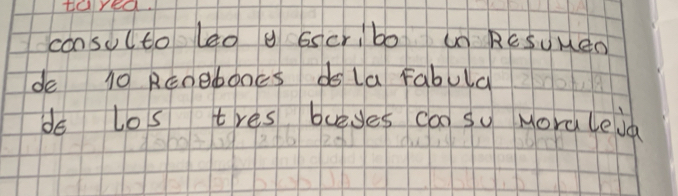 tarea.
consulto leo y escribo un Resumen
de 10 Renglones de la Fabula
de los tres bueyes con su Moraleja